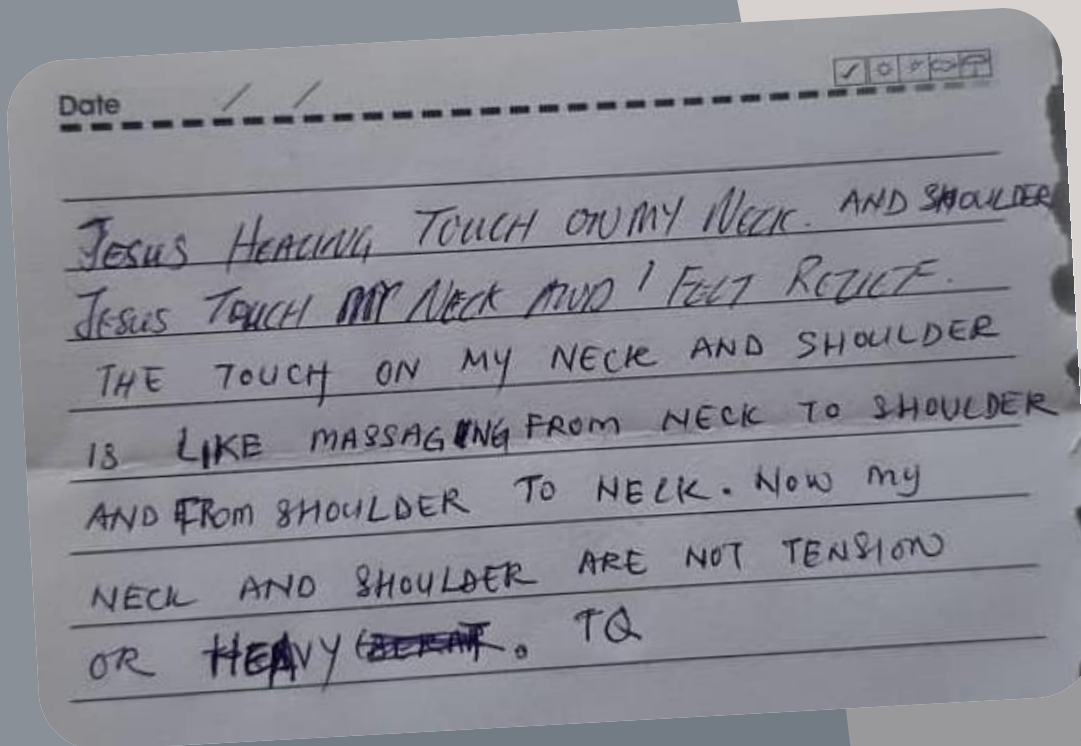 Date / /
JESUS HEALING TOUCH ON MY NECK. AND SHOULDER
JESUS TOUCH MY NECK AND I FELT RELIEF.
THE TOUCH ON MY NECK AND SHOULDER
IS LIKE MASSAGING FROM NECK TO SHOULDER
AND FROM SHOULDER TO NECK. NOW MY
NECK AND SHOULDER ARE NOT TENSION
OR HEAVY. TQ